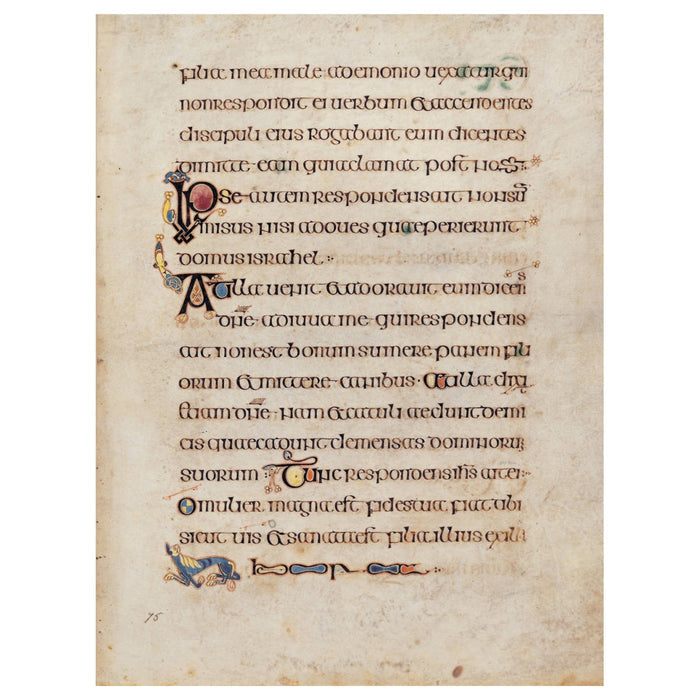 filia mea male a demonio uexatur qui
non respondit ei uerbum et accendentes
discipuli eius rogabant eum dicentes
dimitte eam quia clamat post nos
Ipse autem respondens ait non sū
misus nisi ad oues quae perierunt
domus israhel
At illa uenit et adorauit eum dicens
dn̄e adiuua me qui respondens
ait non est bonum sumere panem fili
orum et mittere canibus · At illa dixit
etiam dn̄e nam et catuli aedunt de mi
cis quae cadunt de mensas dominorū
suorum Tunc respondens ih̄s ait ei
O mulier magna est fides tua fiat tibi
sicut uis et sanata est filia illius ex illa
hora
76